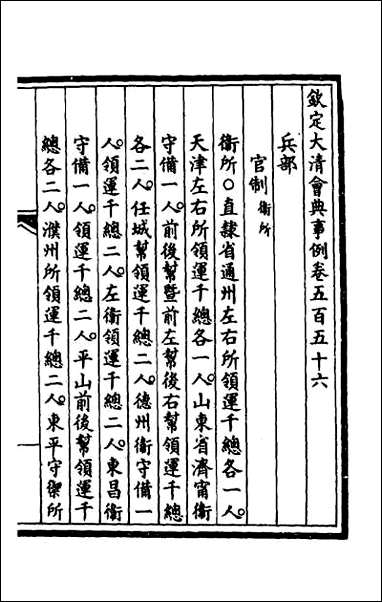 欽定大清會典事例卷五百五十六
兵部
官制衞所
衞所〇直隸省通州左右所領運千總各一人。
天津左右所領運千總各一人。山東省濟甯衞
守備一人。前後幫暨前左幫後右幫領運千總
各二人。任城幫領運千總二人。德州衞守備一
人。領運千總二人。左衞領運千總二人。東昌衞
守備一人。領運千總二人。平山前後幫領運千
總各二人。濮州所領運千總二人。東平守禦所